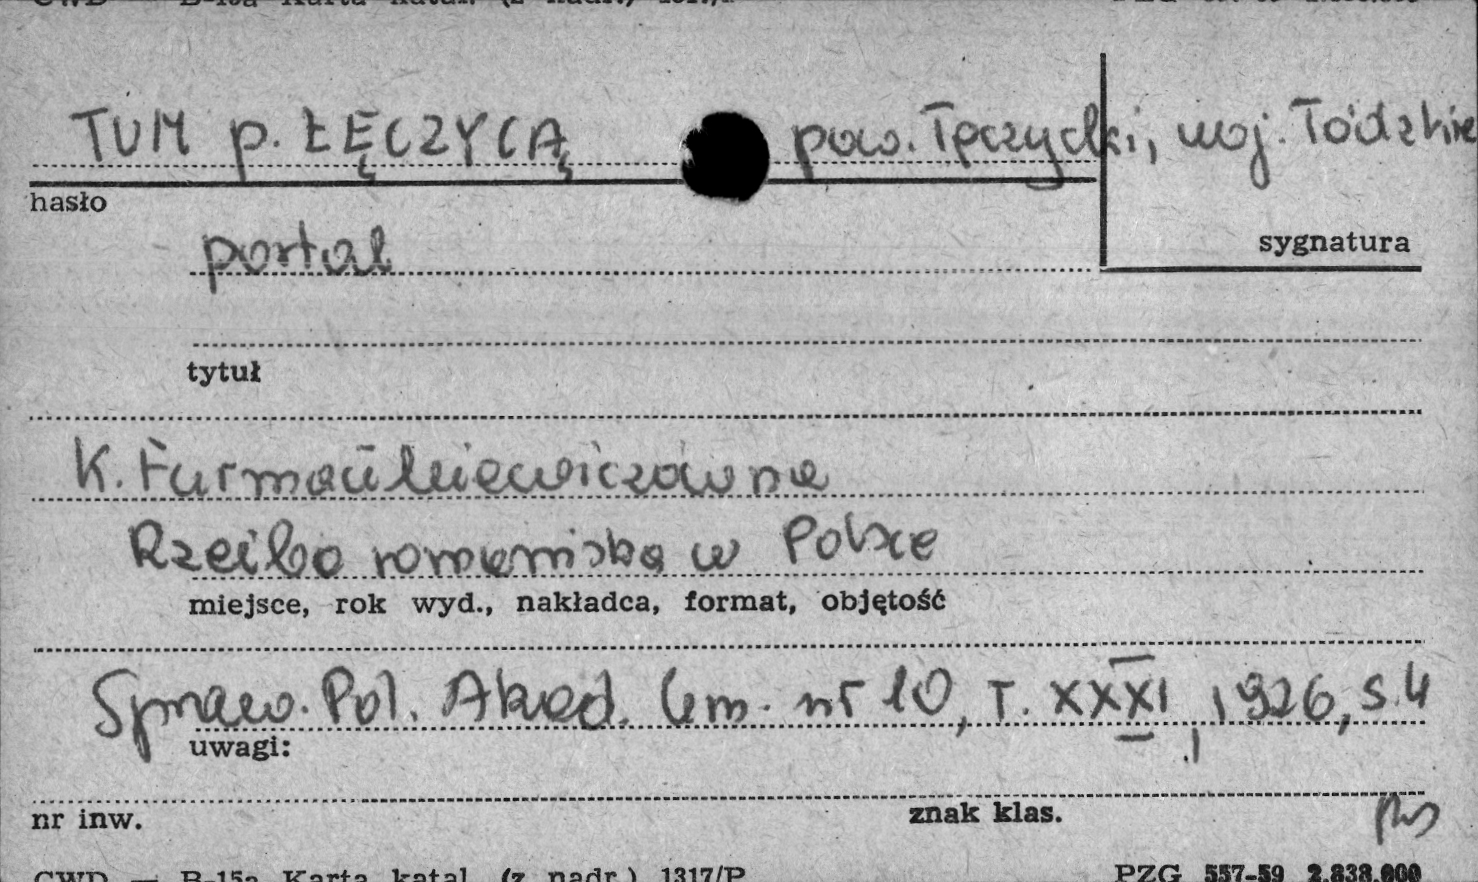 TUM p. ŁĘCZYCĄ pow. Łęczycki, woj. Łódzkie
hasło
portal
sygnatura
tytuł
K. Furmankiewiczówna
Rzeźba romańska w Polsce
miejsce, rok wyd., nakładca, format, objętość
Spraw. Pol. Akad. Um. nr 10, T. XXXI, 1926, s. 4
uwagi:
nr inw. znak klas.
CWD — B-15a Karta katal. (z nadr.) 1317/P PZG 557-59 2.838.000